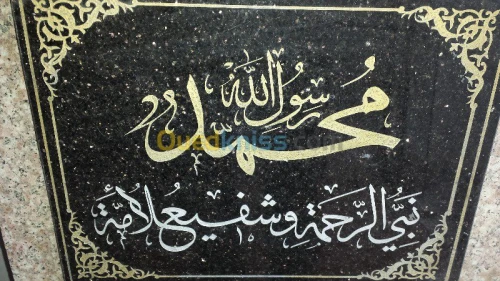 محمد رسول الله
نبي الرحمة وشفيع الامة
Ouedkniss.com